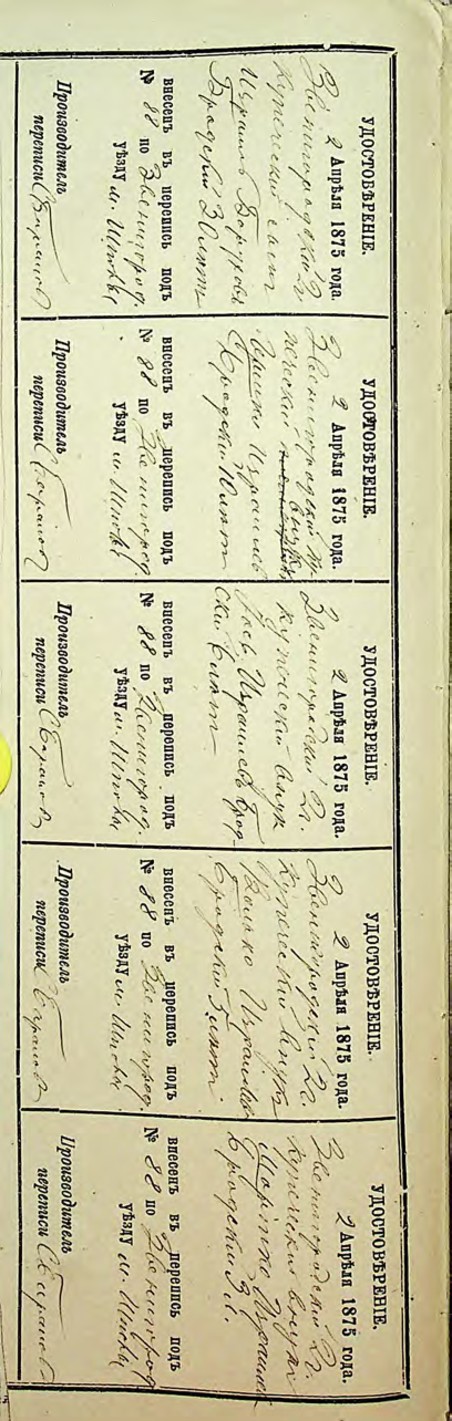 УДОСТОВѢРЕНІЕ.
2 Апрѣля 1875 года.
Звенигородскій 2 г.
купеческій сынъ
Израиль Боруховъ
Бродскій 30 лѣтъ
внесенъ въ перепись подъ
№ 88 по Звенигород.
уѣзду м. Шпола
Производитель
переписи
УДОСТОВѢРЕНІЕ.
2 Апрѣля 1875 года.
Звенигородскій
внукъ
Израилевъ
Бродскій лѣтъ
внесенъ въ перепись подъ
№ 88 по Звенигород.
уѣзду м. Шпола
Производитель
переписи
УДОСТОВѢРЕНІЕ.
2 Апрѣля 1875 года.
Звенигородскій 2 г.
купеческій внукъ
Израилевъ Брод-
скій лѣтъ
внесенъ въ перепись подъ
№ 88 по Звенигород.
уѣзду м. Шпола
Производитель
переписи
УДОСТОВѢРЕНІЕ.
2 Апрѣля 1875 года.
Звенигородскій 2 г.
купеческій внукъ
Волько Израилевъ
Бродскій лѣтъ
внесенъ въ перепись подъ
№ 88 по Звенигород.
уѣзду м. Шпола
Производитель
переписи
УДОСТОВѢРЕНІЕ.
2 Апрѣля 1875 года.
Звенигородскій 2 г.
купеческій внукъ
Израилевъ
Бродскій 3 л.
внесенъ въ перепись подъ
№ 88 по Звенигород
уѣзду м. Шпола
Производитель
переписи